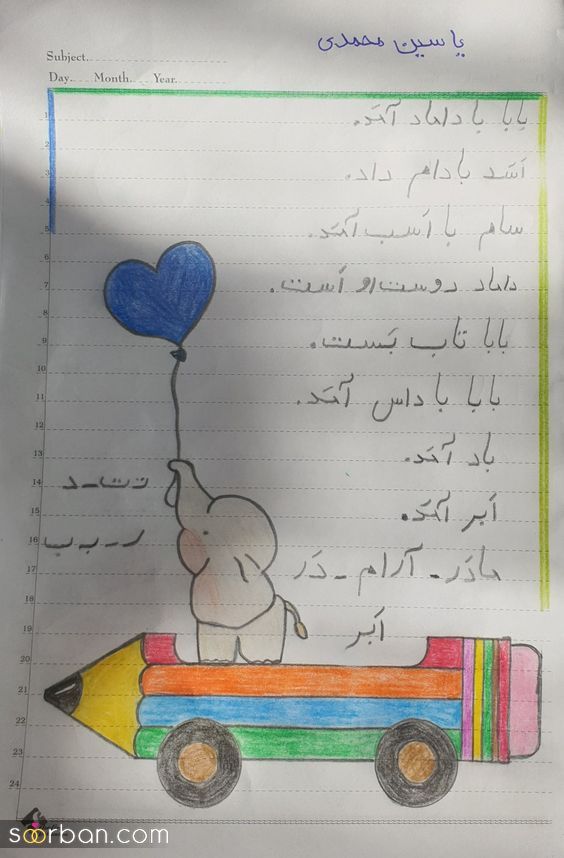 یاسین محمدی
Subject.
Day. Month. Year.
بابا با داماد آمَد.
اَسَد بادام داد.
سام با اَسب آمَد.
داماد دوست او اَست.
بابا تاب بَست.
بابا با داس آمَد.
باد آمَد.
اَبر آمَد.
مادَر - آرام - دَر
اَبر
ت ت - د
ر - ب ب
1
2
3
4
5
6
7
8
9
10
11
12
13
14
15
16
17
18
19
20
21
22
23
24
soorban.com